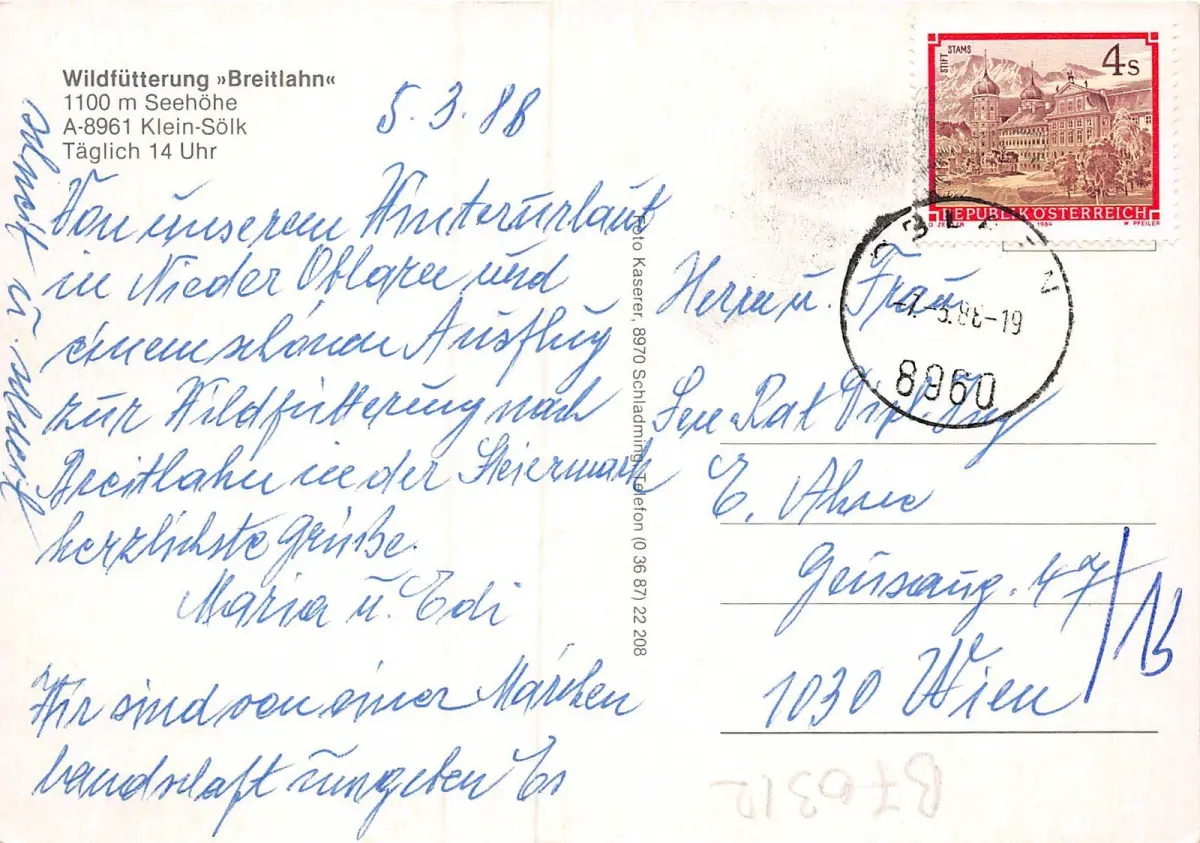 Wildfütterung »Breitlahn«
1100 m Seehöhe
A-8961 Klein-Sölk
Täglich 14 Uhr
5.3.88
Von unserem Winterurlaub
in Nieder Öblarn und
einem schönen Ausflug
zur Wildfütterung nach
Breitlahn in der Steiermark
herzlichste Grüße.
Maria u. Edi
Wir sind von einer Märchen
landschaft umgeben Es
schneit u. schneit
Foto Kaserer, 8970 Schladming, Telefon (0 36 87) 22 208
STIFT STAMS
4 S
REPUBLIK ÖSTERREICH
1984
W. PFEILER
8960
Herrn u. Frau
Sen Rat Dipl Ing
E.
Geusaug. 47
1030 Wien